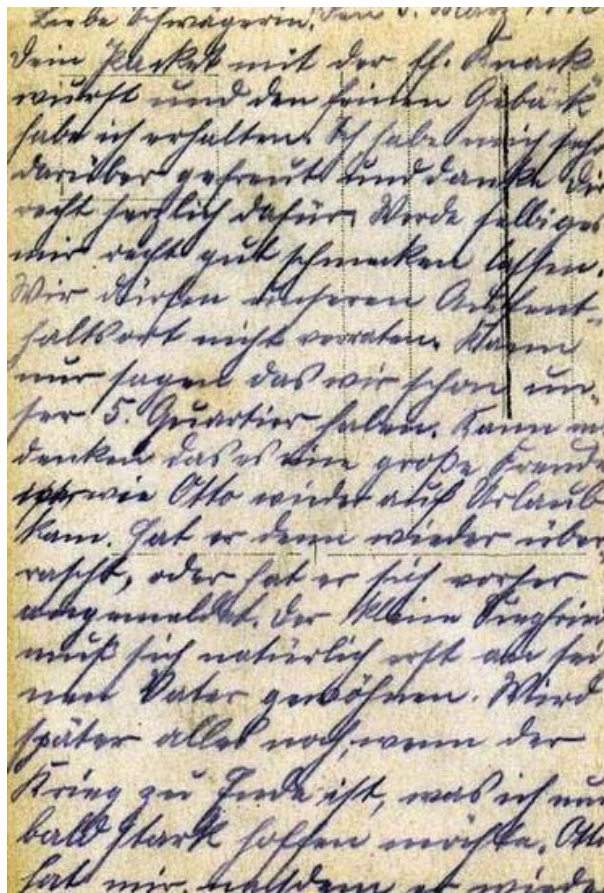 Liebe Schwägerin, den 5. März
Dein Packet mit der ff. Knack
wurst und den feinen Gebäck
habe ich erhalten. Ich habe mich sehr
darüber gefreut und danke Dir
recht herzlich dafür. Werde selbiges
mir recht gut schmecken lassen.
Wir dürfen unseren Aufent-
haltsort nicht verraten. Kann
nur sagen das wir schon un-
ser 5. Quartier haben. Kann
denken das es eine große Freude
war wie Otto wieder auf Urlaub
kam. Hat er denn wieder über-
rascht, oder hat er sich vorher
angemeldet. Der kleine Siegfried
muß sich natürlich erst an sei
nen Vater gewöhnen. Wird
später alles noch, wenn der
Krieg zu Ende ist, was ich nun
bald stark hoffen möchte. Otto
hat mir, nachdem er wieder